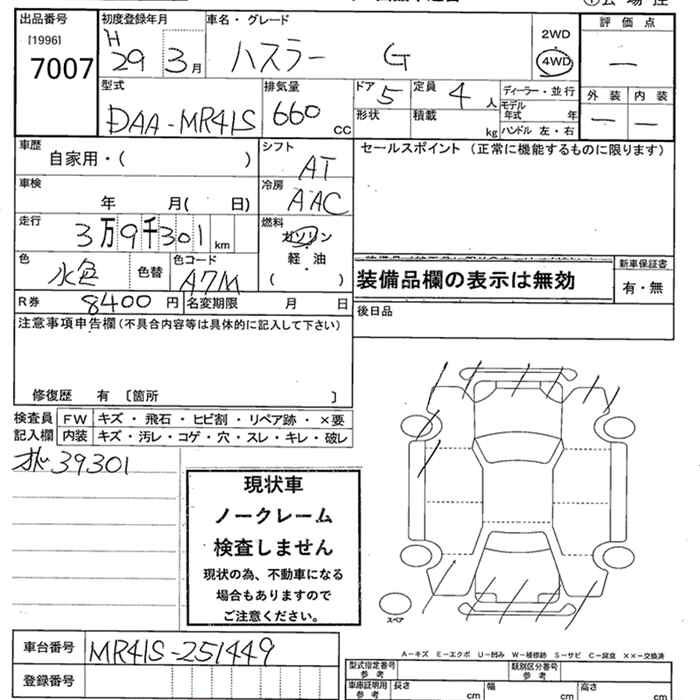 出品番号
[1996]
7007
初度登録年月
H 29 3月
車名・グレード
ハスラー G
2WD
4WD
評価点
—
外装 内装
— —
型式
DAA-MR41S
排気量
660 cc
ドア 5
定員 4 人
形状
積載 kg
ディーラー・並行
モデル年式 年
ハンドル 左・右
車歴
自家用・( )
シフト
AT
セールスポイント (正常に機能するものに限ります)
車検
年 月( 日)
冷房
AAC
走行
3万9千301km
燃料
ガソリン
・
軽油
( )
色
水色
色替
色コード
A7M
装備品欄の表示は無効
新車保証書
有・無
R券 8400円
名変期限 月 日
後日品
注意事項申告欄(不具合内容等は具体的に記入して下さい)
修復歴 有 〔箇所 〕
検査員
記入欄
FW キズ・飛石・ヒビ割・リペア跡・×要
内装 キズ・汚レ・コゲ・穴・スレ・キレ・破レ
39301
現状車
ノークレーム
検査しません
現状の為、不動車になる
場合もありますので
ご注意ください。
スペア
A−キズ E−エクボ U−凹み W−補修跡 S−サビ C−腐食 ××−交換済
車台番号 MR41S-251449
登録番号
型式指定番号
参考
類別区分番号
参考
車庫証明用
参考
長さ cm
幅 cm
高さ cm